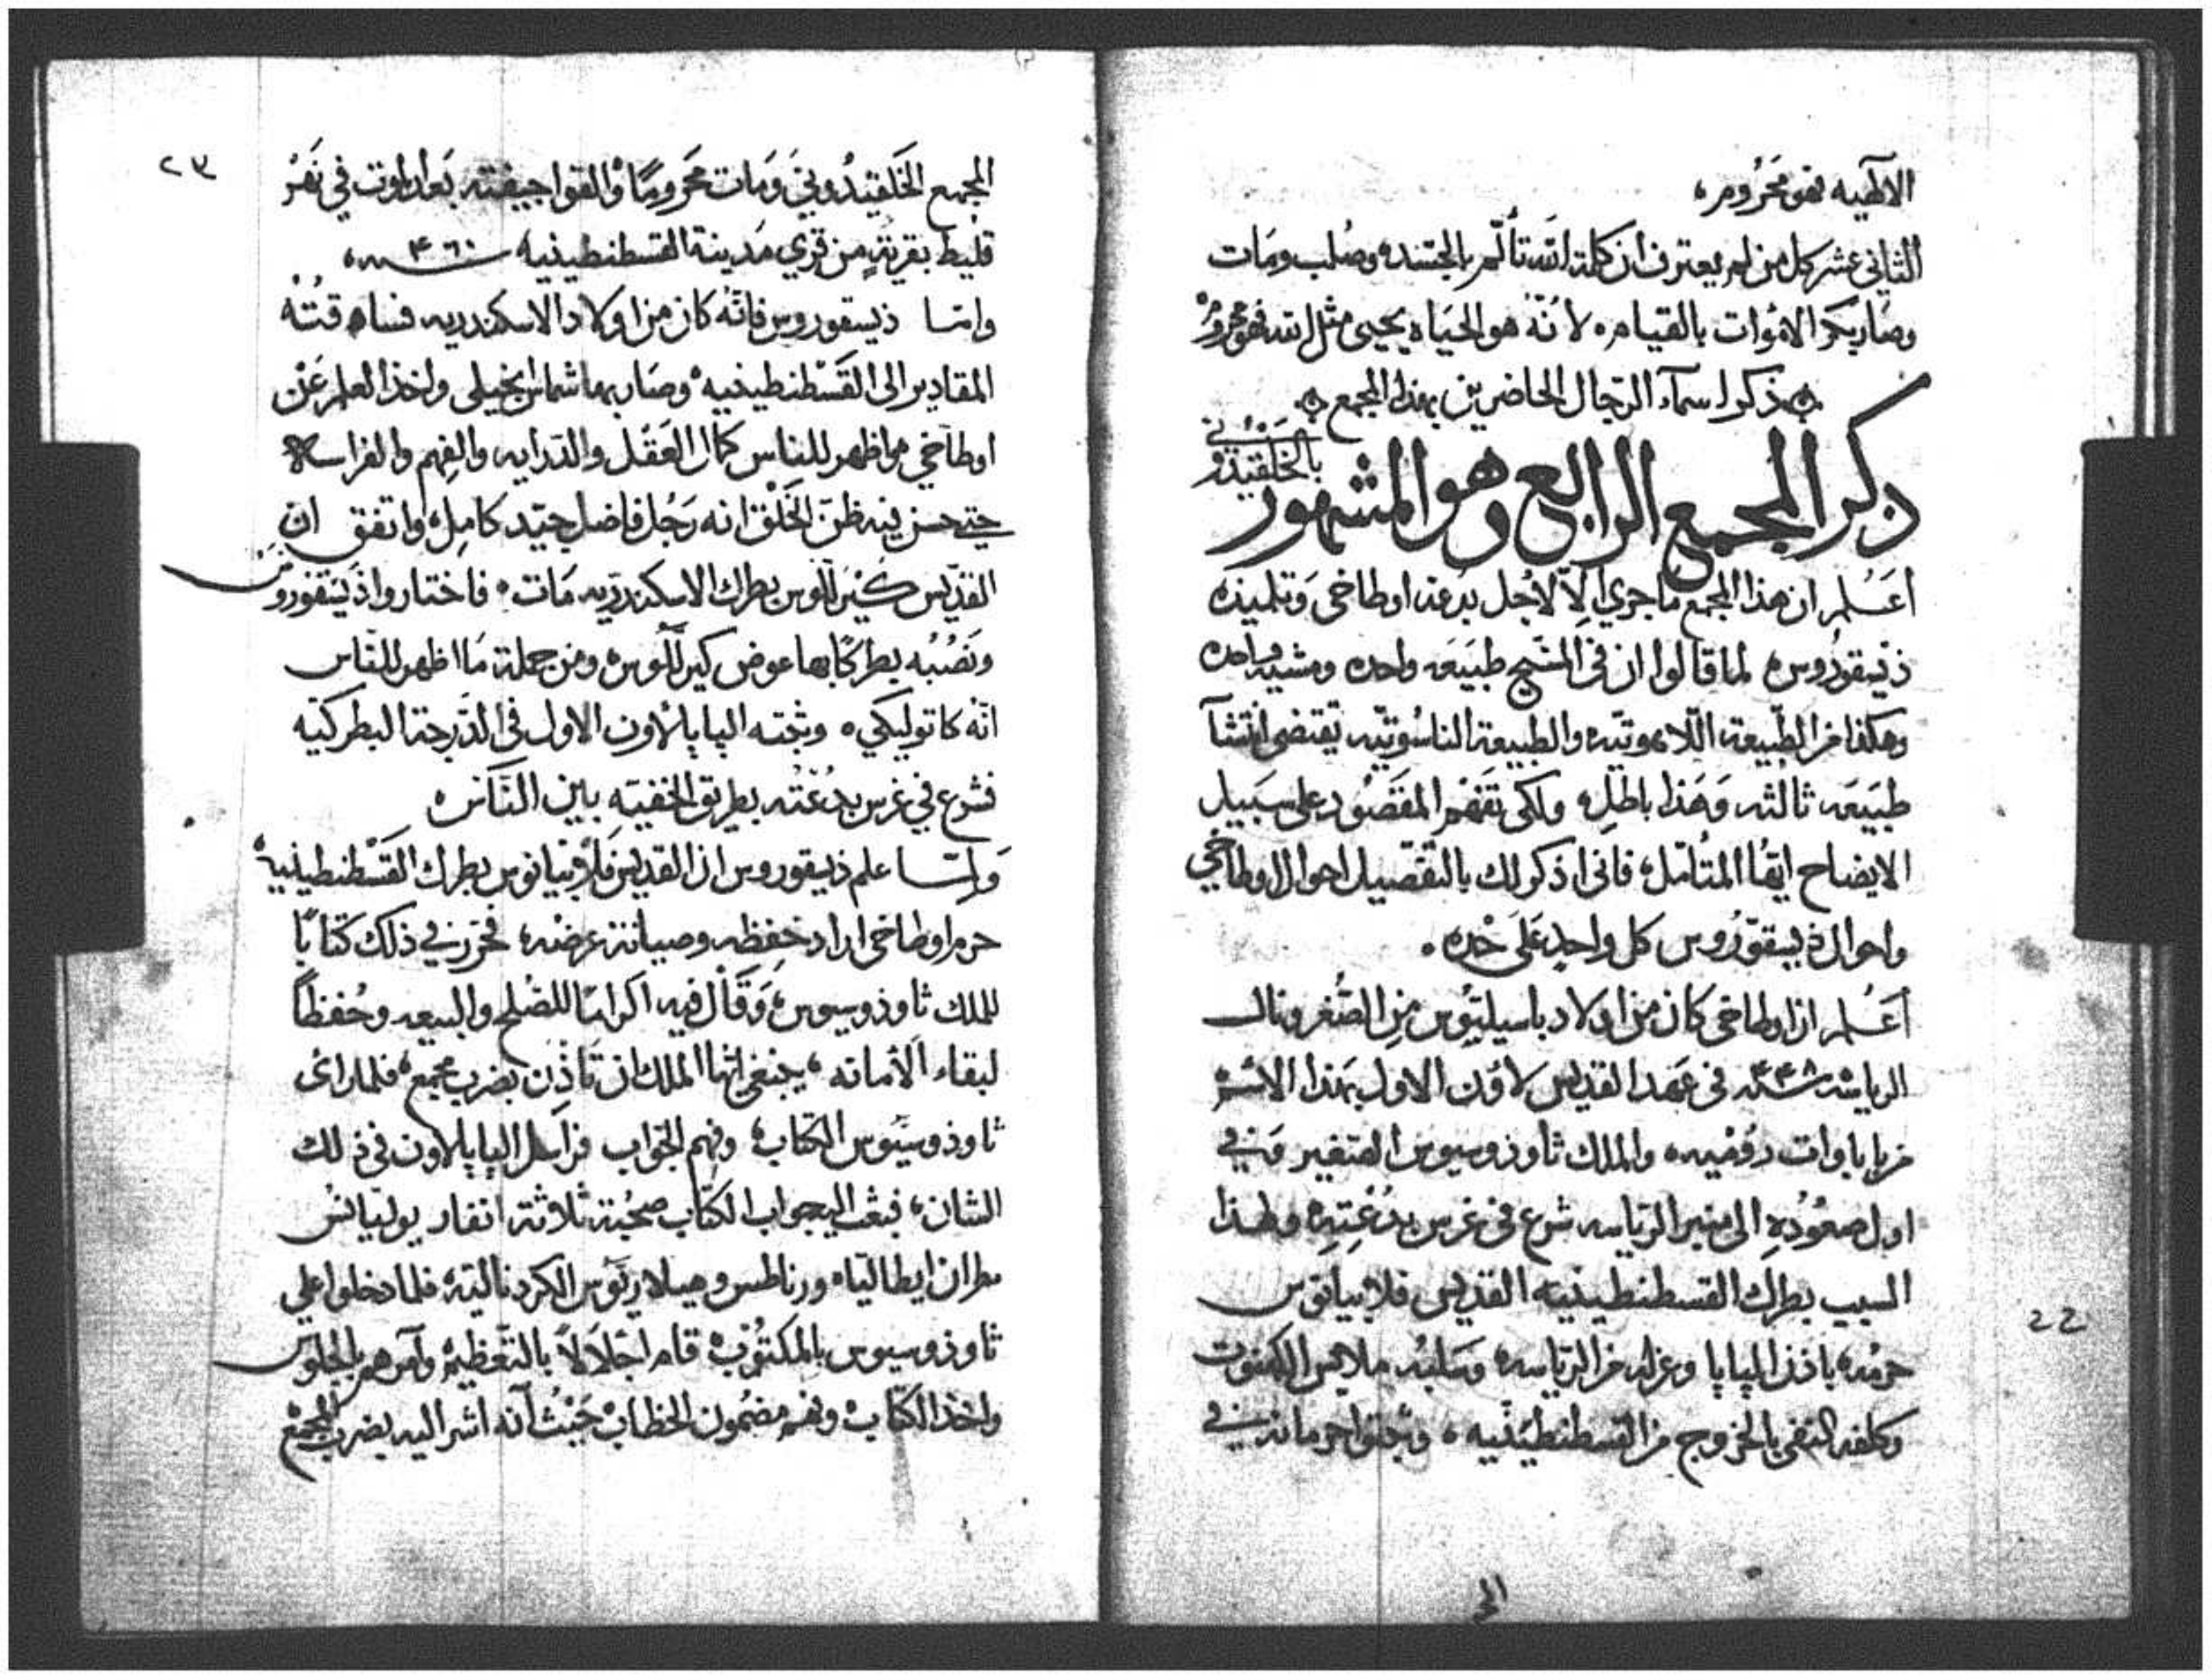 الالهيه فهو محروم،
الثاني عشر كل من لم يعترف ان كلمة الله تألم بالجسد وصُلب ومات
وصار بكر الاموات بالقيامه لانّه هو الحياه يحيى مثل الله فهو محروم
ذكر اسمآء الرجال الحاضرين بهذا المجمع
ذكر المجمع الرابع وهو المشهور
بالخلقيدوني
أعلم ان هذا المجمع ما جري الّا لاجل بدعة اوطاخى وتلميذه
ذيسقوروس لما قالوا ان فى المسيح طبيعه واحده ومشيه واحده
وهكذا من الطبيعة اللاهوتيّه والطبيعة الناسوتيّه تقتضى انتشآ
طبيعه ثالثه وهذا باطل ولكى تفهم المقصود على سبيل
الايضاح ايها المتأمل، فانى اذكر لك بالتفصيل احوال اوطاخي
واحوال ذيسقوروس كل واحدٍ على حده.
أعلم ان اوطاخى كان من اولاد باسيليوس من الصغر ونال
الرياسه سنة ٤٤٨ فى عهد القديس لاون الاول بهذا الاسم
من باباوات روميه والملك ثاوذوسيوس الصغير وفي
اول صعوده الى منبر الرياسه شرع فى غرس بدعته ولهذا
السبب بطرك القسطنطينيه القديس فلابيانوس
حرمه باذن البابا وعزله من الرياسه وسلبه ملابس الكهنوت
وكلفه النفى بالخروج من القسطنطينيه، وثبتوا حرمانه في
الي
22
٢٣
المجمع الخلقيدوني ومات محرومًا والقوا جيفته بعد الموت في نهر
قليط بقرية من قري مدينة القسطنطينيه سنة ٤٦٠
وامّا ذيسقوروس فانّه كان من اولاد الاسكندريه فساقته
المقادير الى القسطنطينيه وصار بها شماس انجيلى واخذ العلم عن
اوطاخي واظهر للناس كمال العقل والدرايه والفهم والفراسه
حتى حسن فيه ظن الخلق انه رجل فاضل جيّد كامل، واتفق ان
القدّيس كيرللوس بطرك الاسكندريه مات. فاختاروا ذيسقوروس
ونصبُه بطركًا بها عوض كيرللوس ومن جملة ما اظهر للناس
انّه كاتوليكي وثبته البابا لاون الاول فى الدّرجة البطركيّه
فشرع في غرس بدعته بطريق الخفيه بين الناس
ولمّا علم ذيسقوروس ان القديس فلابيانوس بطرك القسطنطينيه
حرم اوطاخى اراد حفظه وصيانة عرضه، فحرّر في ذلك كتابًا
للملك ثاوذوسيوس، وقال فيه اكرامًا للصلح والبيعه وحفظًا
لبقاء الأمانه، ينبغى ايها الملك ان تأذن بضرب مجمع، فلما راى
ثاوذوسيوس الكتاب، وفهم الجواب فراسل البابا لاون فى ذلك
الشان، فبعث اليه جواب الكتاب صحبة ثلاثة انفار يوليانس
مطران ايطاليا ورناطس وهيلاريوس الكردناليّه فلما دخلوا علي
ثاوذوسيوس بالمكتوب قام اجلالاً بالتعظيم وأمرهم بالجلوس
واخذ الكتاب وفهم مضمون الخطاب حيث أنه اشر اليه بضرب المجمع